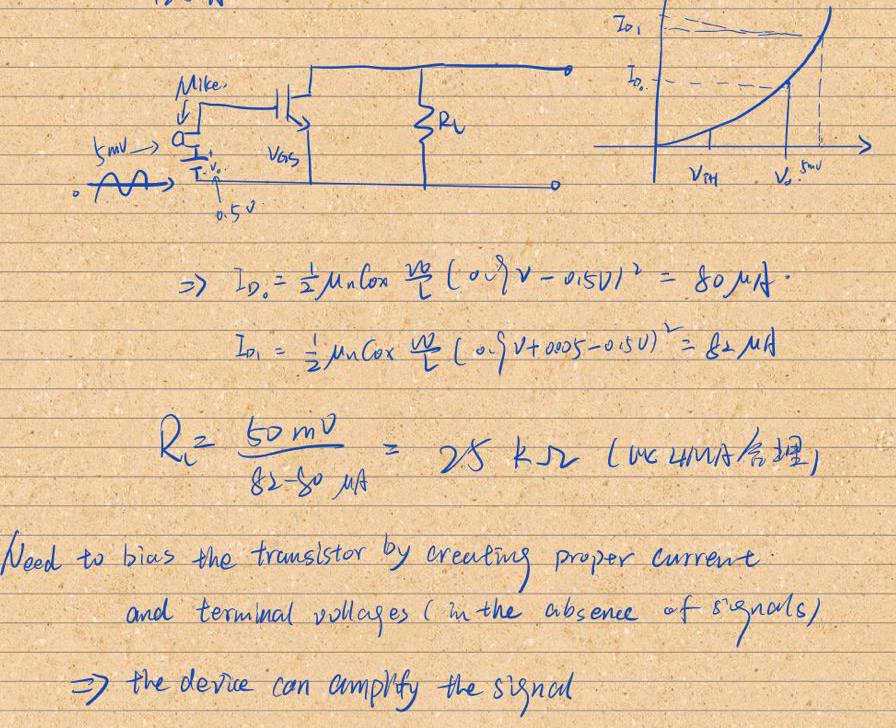 Mike.
5mV →
V₀
VGS
RL
0.5V
ID₁
ID₀
VTH V₀ 5mV
⇒ ID₀ = ½ μnCox W/L (0.9V − 0.5V)² = 80 μA.
ID₁ = ½ μnCox W/L (0.9V + 0.005 − 0.5V)² = 82 μA
RL = 50mV / 82−80 μA = 25 kΩ
Need to bias the transistor by creating proper current
and terminal voltages (in the absence of signals)
⇒ the device can amplify the signal